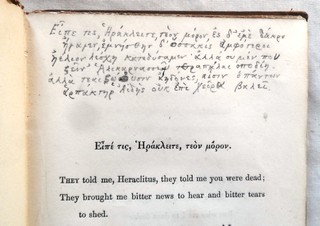 Εἶπε τις, Ἡράκλειτε, τεὸν μόρον, ἐς δ' ἐμὲ δάκρυ
ἤγαγεν, ἐμνήσθην δ' ὁσσάκις ἀμφότεροι
ἥλιον λέσχῃ κατεδύσαμεν· ἀλλὰ σὺ μέν που
ξεῖν' τετράπαλαι σποδιή
ἀηδόνες, αἷσιν ὁ πάντων
ἁρπακτὴρ Ἀΐδης οὐκ ἐπὶ χεῖρα βαλεῖ
Εἶπέ τις, Ἡράκλειτε, τεὸν μόρον.
THEY told me, Heraclitus, they told me you were dead;
They brought me bitter news to hear and bitter tears
to shed.